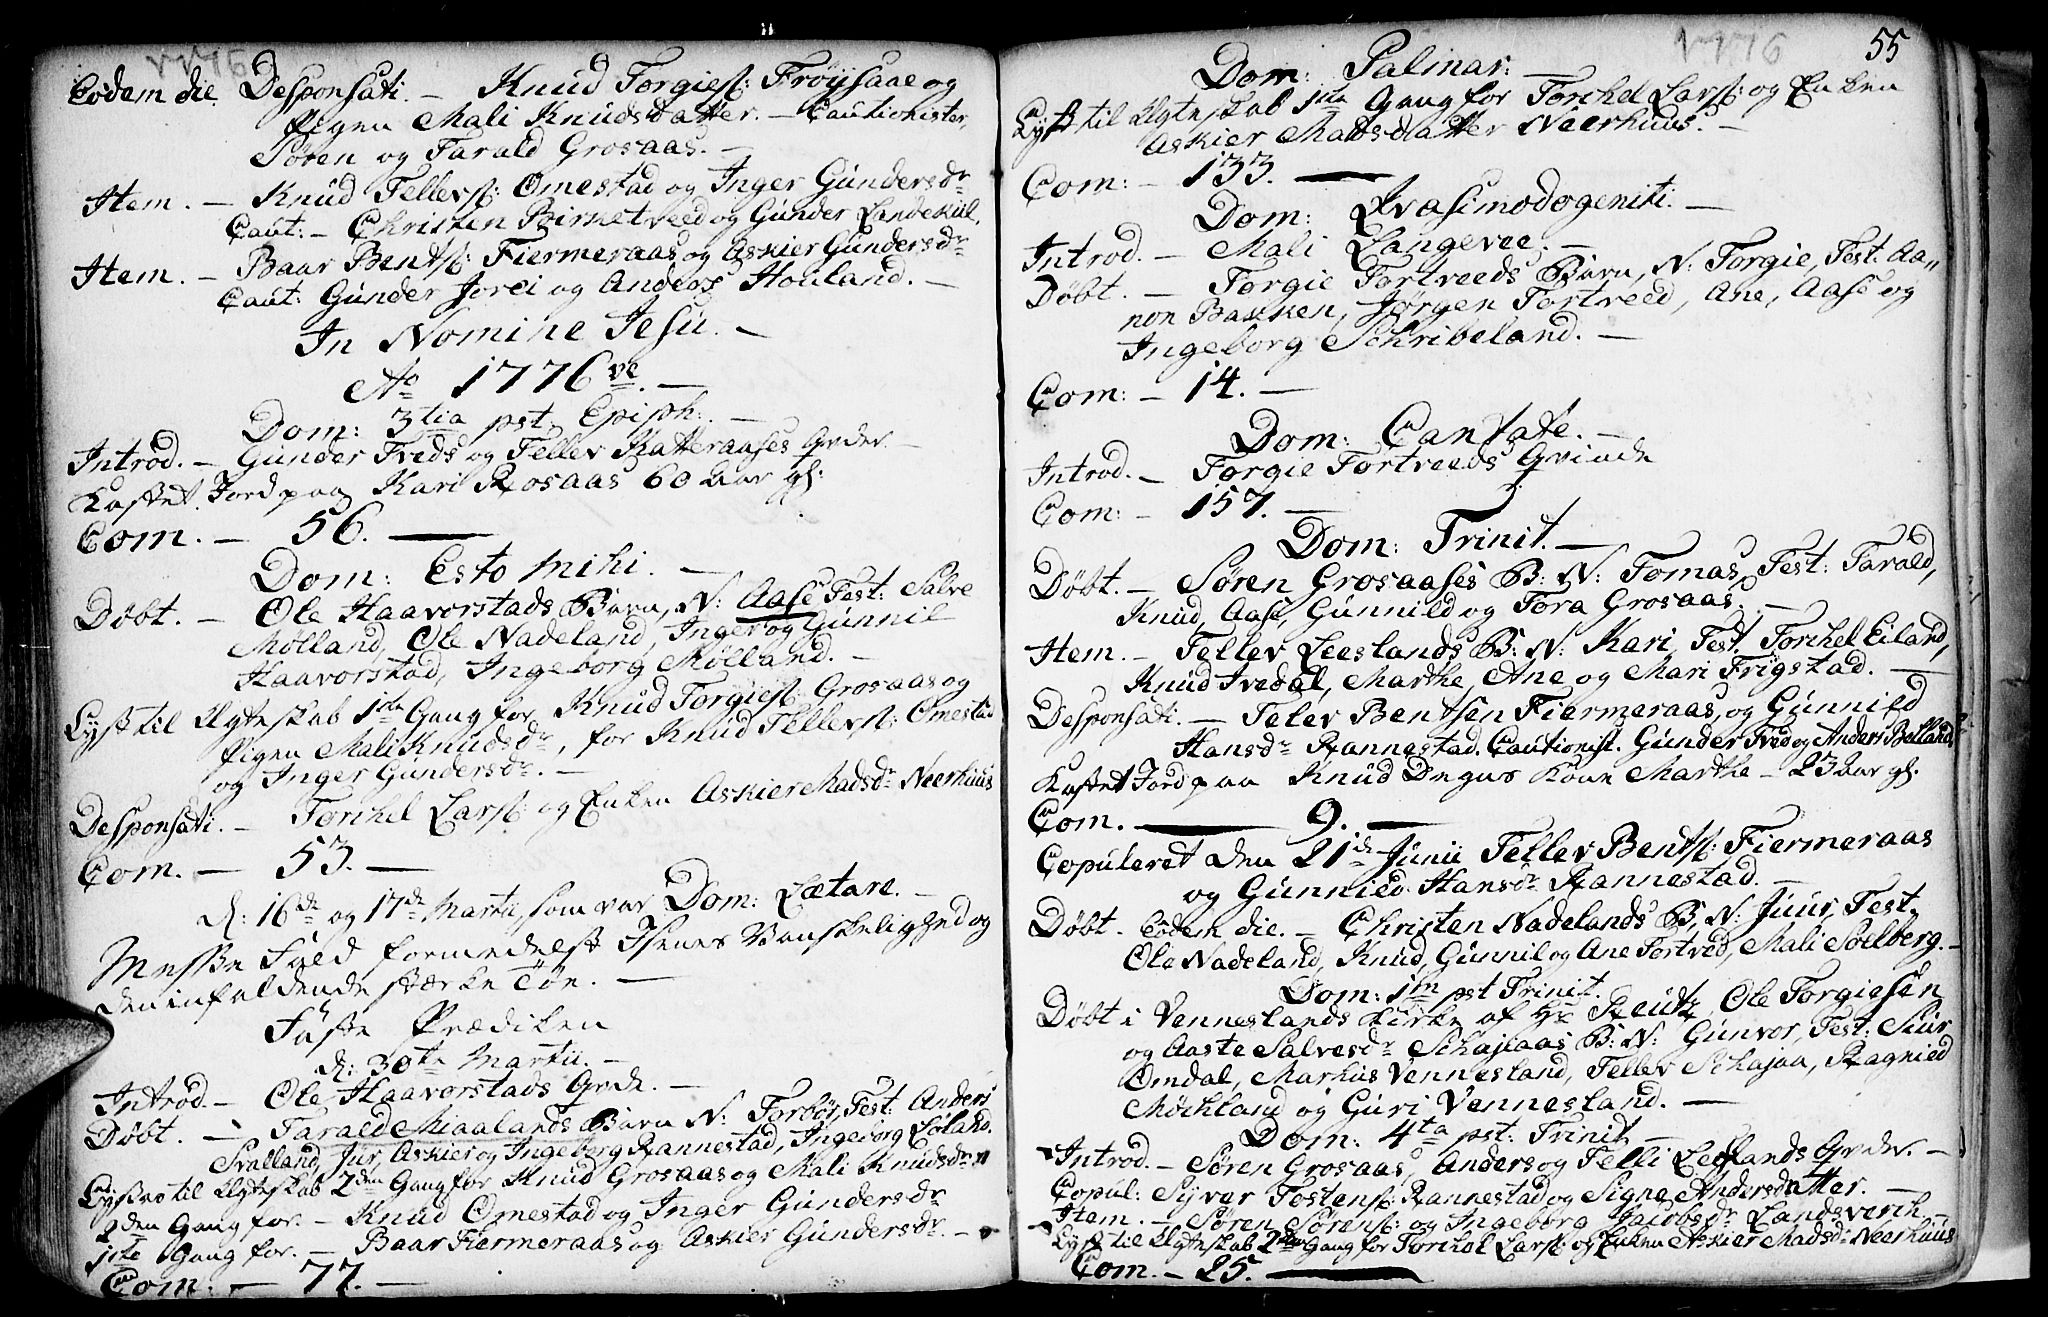 1776
Eodem die. Desponsati. — Knud Torgiess: Frøysaae og
Pigen Mali Knudsdatter. — Cautionister,
Søren og Tarald Grosaas. —
Item. — Knud Tellevs: Omestad og Inger Gundersdr
Caut: — Christen Birketveed og Gunder Landekiil.
Item. — Baar Bents: Fiermeraas og Askier Gundersdr
Caut: Gunder Jorei og Anders Houland. —
In Nomine Jesu. —
Ao 1776ve. —
Dom: 3tia pst. Epiph: —
Introd. — Gunder Treds og Tellev Katteraases Qvder. —
Kastet Jord paa Kari Rosaas 60 Aar gl:
Com. — 56. —
Dom: Esto mihi. —
Døbt. — Ole Haavorstads Barn, N: Aase Test: Salve
Mølland, Ole Nadeland, Inger og Gunnil
Haavorstad, Ingeborg Mølland. —
Lyst til Ægteskab 1ste Gang for Knud Torgiess: Grosaas og
Pigen Mali Knudsdr, for Knud Tellevs: Omestad
og Inger Gundersdr. —
Desponsati. — Torchel Lars: og Enken Askier Madsdr Neerhuus
Com. — 53. —
d: 16de og 17de Martii, som var Dom: Lætare. —
Messe Fald formedelst Isenes Vanskelighed og
den infaldende stærke Tøe. —
Faste Prædiken
d: 30te Martii. —
Introd. — Ole Haavorstads Qvde. —
Døbt. — Tarald Miaalands Barn N: Torbor, Test: Anders
Svalland, Jur, Askier og Ingeborg Rannestad, Ingeborg Løland.
Lyst til Ægteskab 2den Gang for Knud Grosaas og Mali Knudsdr
2den Gang for. — Knud Omestad og Inger Gundersdr
1ste Gang for. — Baar Fiermeraas og Askier Gundersdr. —
Com. — 77. —
1776 55
Dom: Palmar: —
Lyst til Ægteskab 1ste Gang for Torchel Lars: og Enken
Askier Madsdatter Neerhuus. —
Com: — 133. —
Dom: Qvasimodogeniti. —
Introd. — Mali Langevee. —
Døbt. — Torgie Tortveeds Barn, N: Torgie, Test: Aa-
non Bakken, Jørgen Tortveed, Ane, Aase og
Ingeborg Schribeland. —
Com: — 14. —
Dom: Cantate. —
Introd. — Torgie Tortveeds Qvinde
Com: — 157. —
Dom: Trinit. —
Døbt. — Søren Grosaases B: N: Tomas, Test: Tarald,
Knud, Aase, Gunnild og Tora Grosaas. —
Item. — Tellev Leestands B: N: Kari, Test. Torchel Eiland,
Knud Ivedal, Marthe, Ane og Mari Frigstad. —
Desponsati. — Telev Bentsen Fiermeraas, og Gunnild
Hansdr Rannestad. Cautionist. Gunder Tved og Anders
Kastet Jord paa Knud Degns Kone Marthe — 23 Aar gl.
Com. — 9. —
Copuleret den 21de Junii Tellev Bents: Fiermeraas
og Gunnild Hansdr Rannestad. —
Døbt. Eodem die. — Christen Nadelands B: N: Juur, Test.
Ole Nadeland, Knud, Gunnil og Ane Tortved, Mali Solberg. —
Dom: 1m pst Trinit.
Døbt i Venneslands Kirke af Hr Reutz, Ole Torgiesen
og Aaste Salvesdr Schajaas B: N: Gunvor, Test: Siur
Omdal, Markus Vennesland, Tellev Schajaa, Ragnild
Mochland og Guri Vennesland. —
Dom: 4ta pst: Trinit —
Introd. — Søren Grosaas, Anders og Telli Leelands Qvder. —
Copul: Syver Tostens: Rannestad og Signe Andersdatter. —
Item. — Søren Sørens: og Ingeborg Jacobsdr Landsverch. —
Lyst til Ægteskab 2den Gang for Torchel Lars: og Enken Askier Madsdr Neerhuus
Com. — 25. —